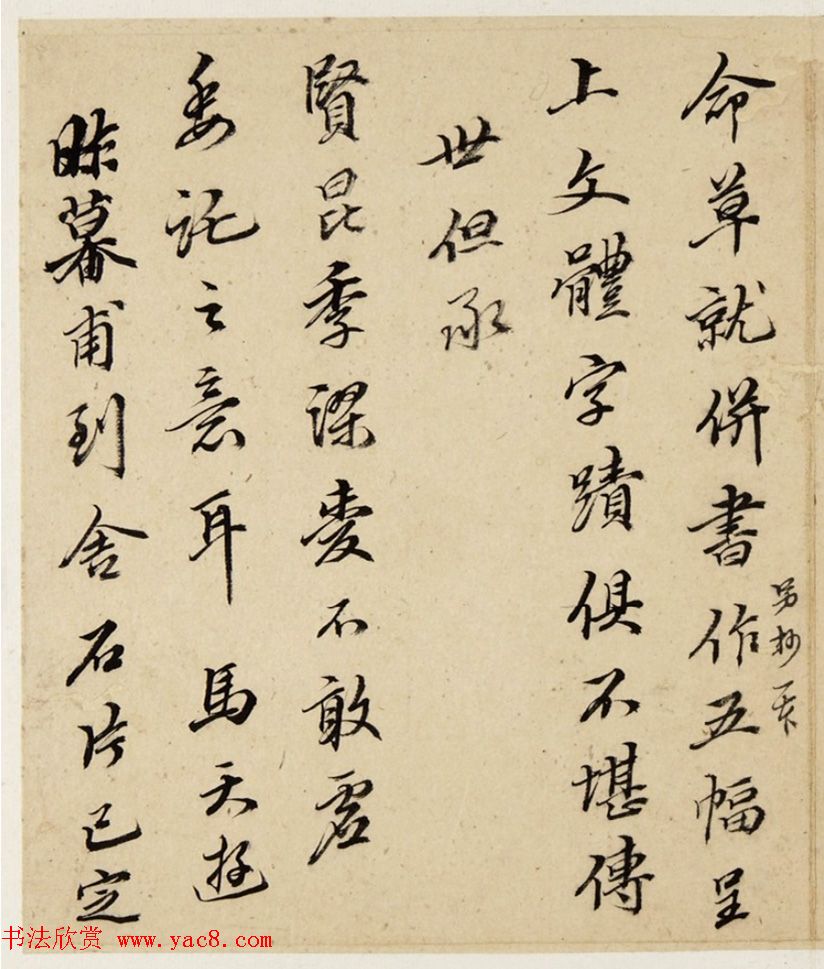 命草就併書作五幅呈
另抄一本
上文體字蹟俱不堪傳
世但承
賢昆季謬愛不敢虛
委託之意耳馬天游
昨暮甫到舍石片已定
书法欣赏 www.yac8.com